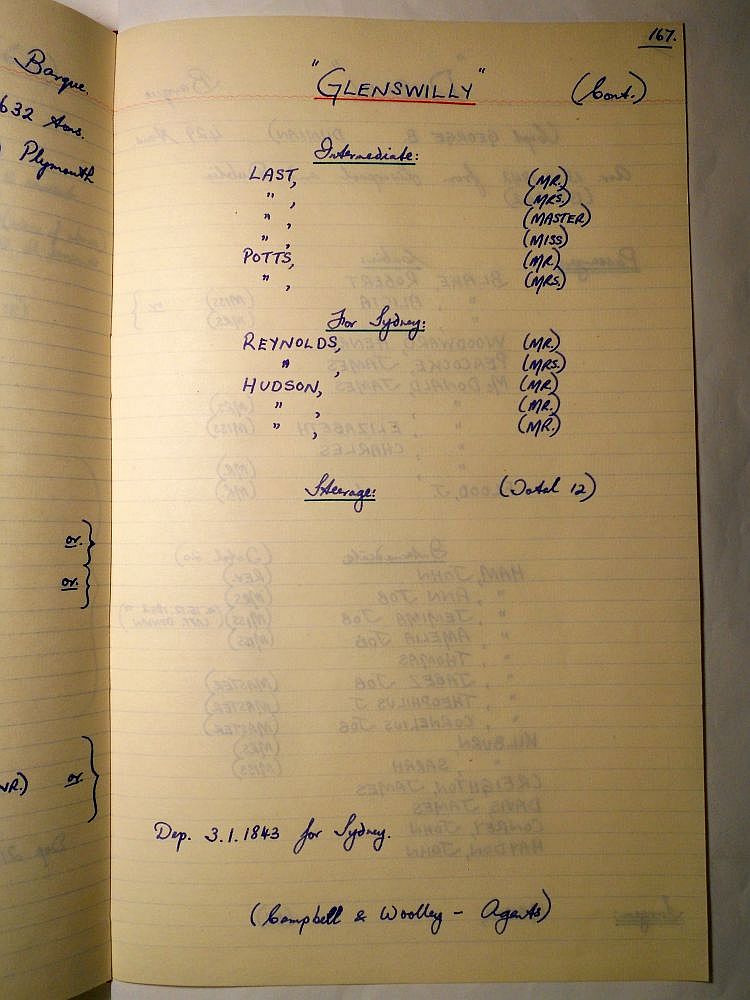 Barque.
632 tons.
Plymouth
or.
or.
or.
167.
"GLENSWILLY" (Cont.)
Intermediate:
LAST, (MR.)
" , (MRS.)
" , (MASTER)
" , (MISS)
POTTS, (MR.)
" , (MRS.)
For Sydney:
REYNOLDS, (MR.)
" , (MRS.)
HUDSON, (MR.)
" , (MR.)
" , (MR.)
Steerage: (Total 12)
Dep. 3.1.1843 for Sydney.
(Campbell & Woolley - Agents)